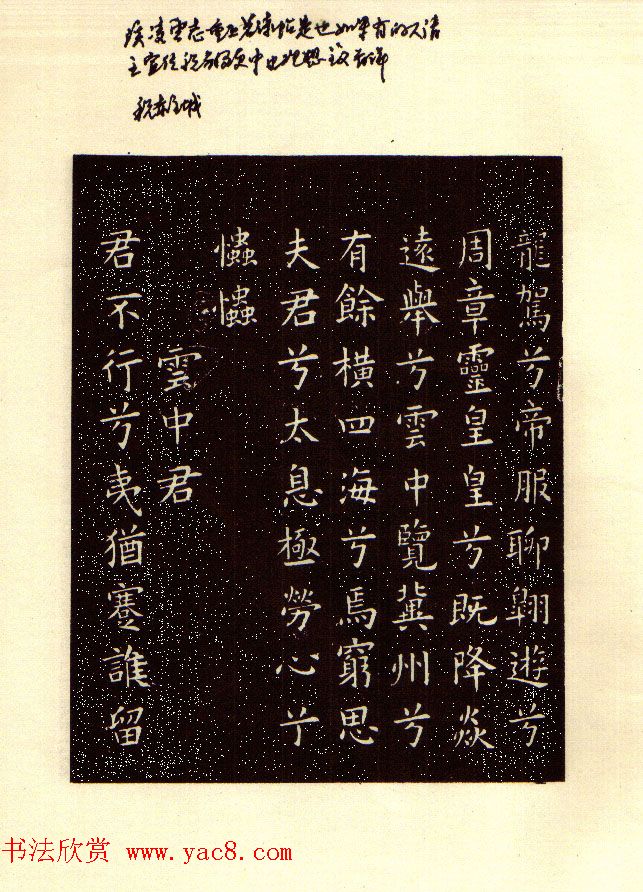 龍駕兮帝服聊翺遊兮
周章靈皇皇兮既降焱
遠舉兮雲中覽冀州兮
有餘橫四海兮焉窮思
夫君兮太息極勞心兮
𢥞𢥞
雲中君
君不行兮夷猶蹇誰留
书法欣赏 www.yac8.com